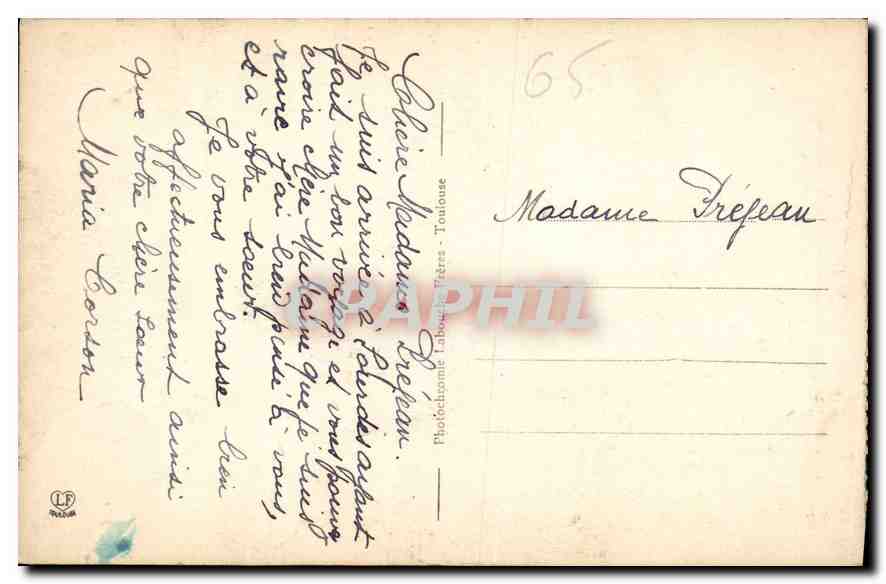 Chère Madame Préjean.
Je suis arrivée à Lourdes ayant
fait un bon voyage et vous pouvez
croire chère Madame que je suis
ravie j'ai bien pensé à vous,
et à votre soeur.
Je vous embrasse bien
affectueusement ainsi
que votre chère soeur
Maria Corson
Photochromie Labouche Frères - Toulouse
65
Madame Préjean
CPAPHIL
LF
TOULOUSE